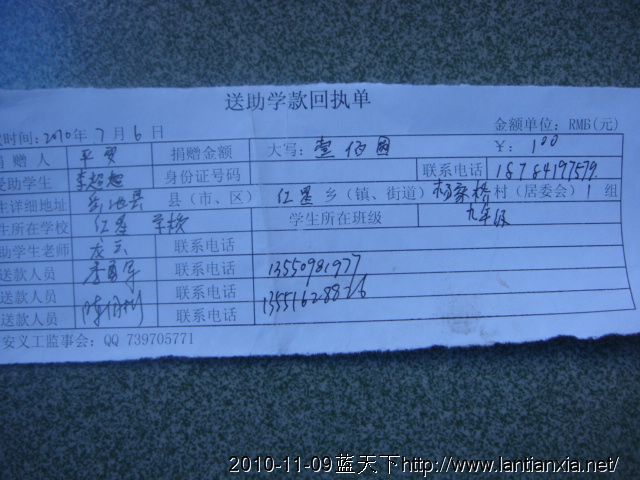 送助学款回执单
时间: 2010年 7月 6日 金额单位: RMB(元)
赠人 平安 捐赠金额 大写: 壹佰圆 ￥: 100
受助学生 李超超 身份证号码 联系电话 18784197579
详细地址 岳池县 县(市、区) 红星 乡(镇、街道) 杨家桥 村(居委会) 1 组
生所在学校 红星 学校 学生所在班级 九年级
助学生老师 联系电话
送款人员 李勇军 联系电话 13550981977
送款人员 联系电话
送款人员 联系电话
安义工监事会: QQ 739705771
2010-11-09蓝天下http://www.lantianxia.net/